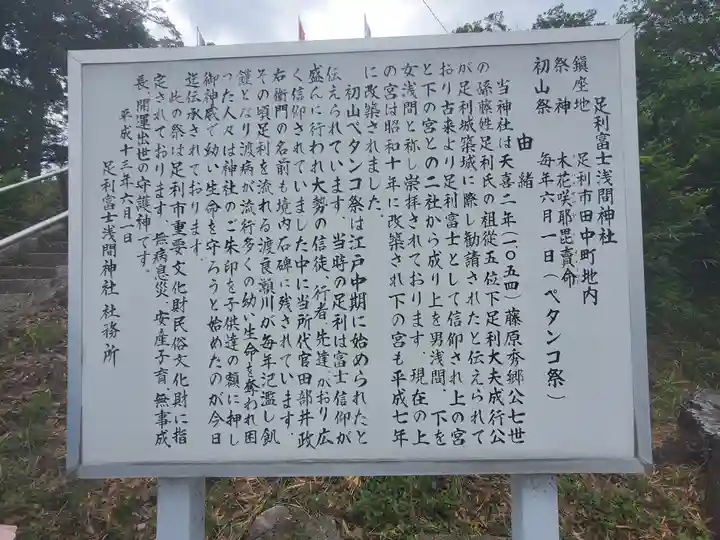 足利富士浅間神社
鎮座地 足利市田中町地内
祭神 木花咲耶毘賣命
初山祭 毎年六月一日(ペタンコ祭)
由緒
当神社は天喜二年(一〇五四)藤原秀郷公七世
の孫藤姓足利氏の祖從五位下足利大夫成行公
が足利城築城に際し勧請されたと伝えられて
おり古来より足利富士として信仰され上の宮
と下の宮との二社から成り上を男浅間、下を
女浅間と称し崇拝されております。現在の上
の宮は昭和十年に改築され下の宮も平成七年
に改築されました。
初山ペタンコ祭は江戸中期に始められたと
伝えられています。当時の足利は富士信仰が
盛んに行われ大勢の信徒、行者、先達、がおり広
く信仰されていました中に当所代官田部井政
右衛門の名前も境内石碑に残されています。
その頃足利を流れる渡良瀬川が毎年氾濫し飢
饉となり渡病が流行多くの幼い生命を奪われ困
った人々は神社のご朱印を子供達の額に押し
御神威で幼い生命を守ろうと始めたのが今日
迄伝承されております。
此の祭は足利市重要文化財民俗文化財に指
定されております。無病息災、安産子育、無事成
長、開運出世の守護神です。
平成十三年六月一日
足利富士浅間神社 社務所